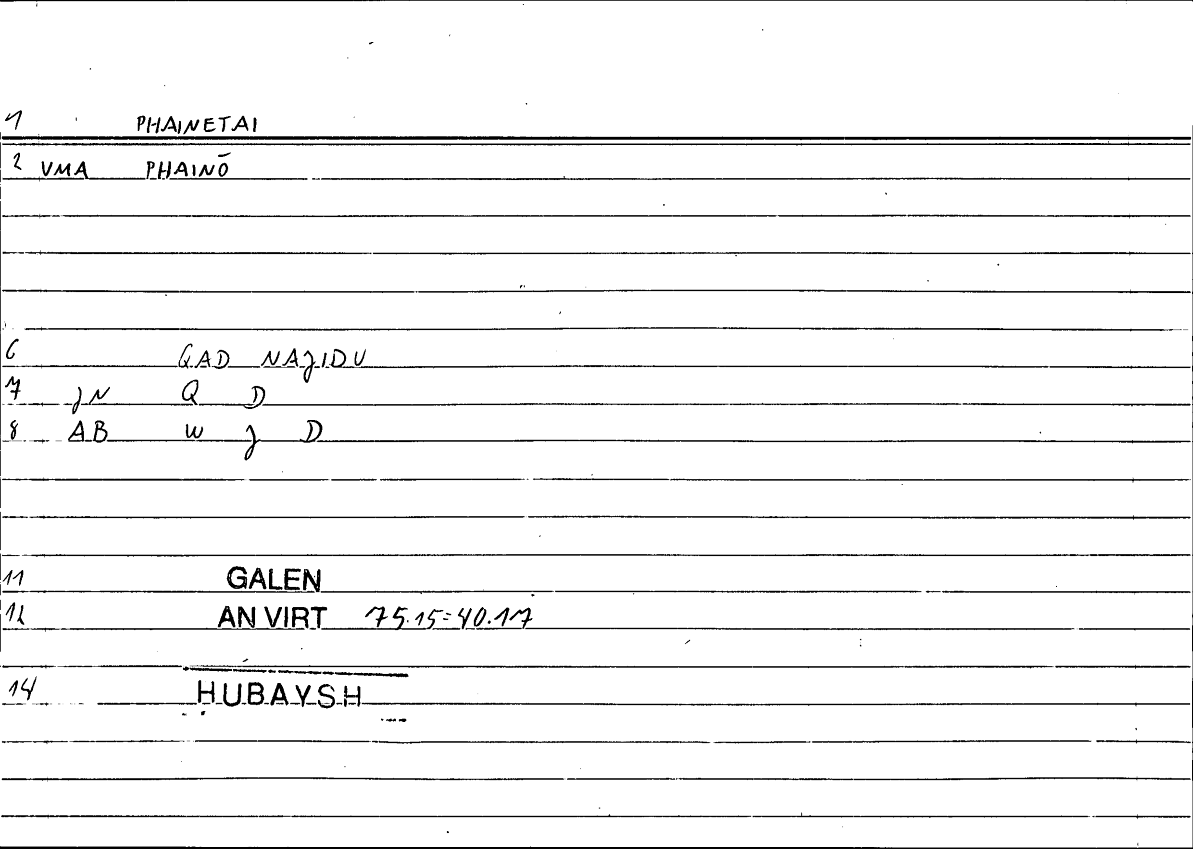 1 PHAINETAI
2 VMA PHAINŌ
6 QAD NAJIDU
7 JN Q D
8 AB W J D
11 GALEN
12 AN VIRT 75.15=40.17
14 HUBAYSH